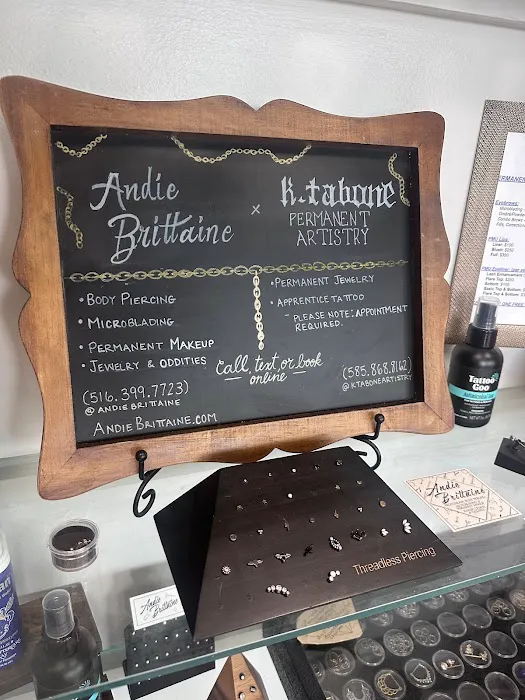 Andie
Brittaine
x
k.tabone
PERMANENT
ARTISTRY
• BODY PIERCING
• MICROBLADING
• PERMANENT MAKEUP
• JEWELRY & ODDITIES
• PERMANENT JEWELRY
• APPRENTICE TATTOO
- PLEASE NOTE: APPOINTMENT
REQUIRED.
Call, text, or book
online
(516.399.7723)
@ANDIEBRITTAINE
ANDIEBRITTAINE.COM
(585.868.8162)
@KTABONEARTISTRY
Tattoo
Goo
Threadless Piercing
Andie
Brittaine
Andie
Brittaine